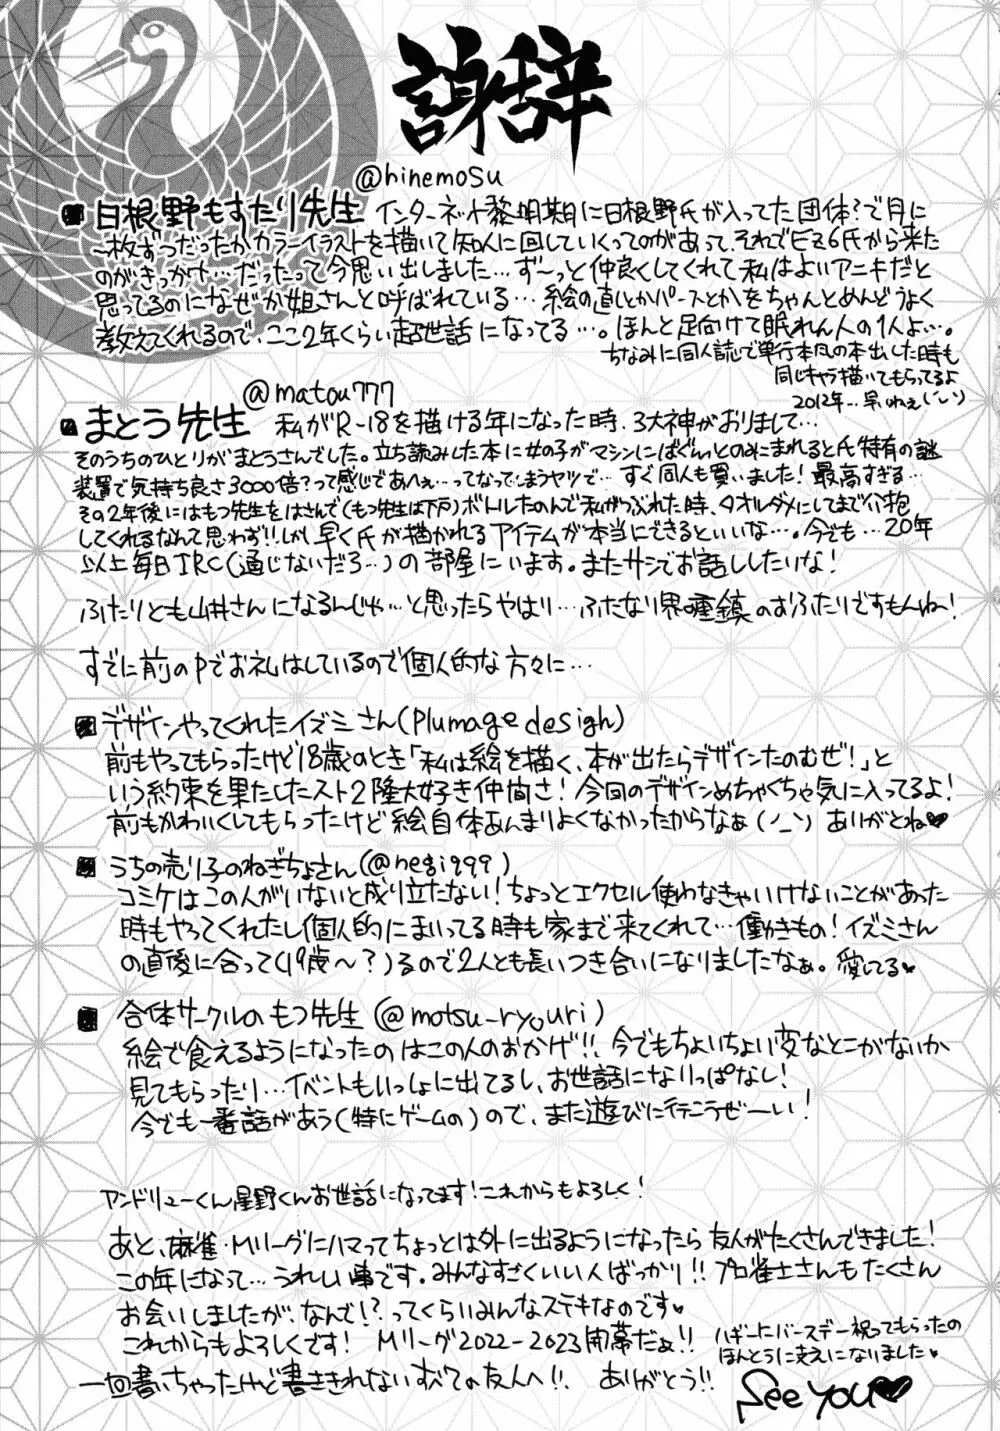 謝辞
@hinemosu
■白根野もすたり先生 インターネット黎明期に白根野氏が入ってた団体?で月に
一枚ずつだったかカラーイラストを描いて知人に回していくってのがあって、それでEZ6氏から来た
のがきっかけ…だったって今思い出しました…ず〜っと仲良くしてくれて私はよいアニキだと
思ってるのになぜか姐さんと呼ばれている…絵の直しとかパースとかをちゃんとめんどうよく
教えてくれるので、ここ2年くらい超世話になってる…。ほんと足向けて眠れん人の1人よ…。
ちなみに同人誌で単行本風の本出した時も
同じキャラ描いてもらってるよ
2012年…早いねぇ
@matou777
■まとう先生 私がR-18を描ける年になった時、3大神がおりまして…
そのうちのひとりがまとうさんでした。立ち読みした本に女の子がマシンにばぐんっとのみこまれると氏特有の謎
装置で気持ち良さ3000倍?って感じであへぇ…ってなってしまうヤツで…すぐ同人も買いました!最高すぎる…
その2年後にはもつ先生をはさんで(もつ先生は下戸)ボトルたのんで私がつぶれた時、タオルダメにしてまで介抱
してくれるなんて思わず!!しかし早く氏が描かれるアイテムが本当にできるといいな…。今でも…20年
以上毎日IRC(通じないだろ…)の部屋にいます。またサシでお話ししたいな!
ふたりとも山井さんになるんじゃ…と思ったらやはり…ふたなり界の重鎮のおふたりですもんね〜!
すでに前のPでお礼はしているので個人的な方々に…
■デザインやってくれたイズミさん(Plumage design)
前もやってもらったけど18歳のとき「私は絵を描く、本が出たらデザインたのむぜ!」と
いう約束を果たしたスト2隆大好き仲間さ!今回のデザインめちゃくちゃ気に入ってるよ!
前もかわいくしてもらったけど絵自体あんまりよくなかったからなぁ(ノ_ン)ありがとね♥
■うちの売り子のねぎちょさん(@negi999)
コミケはこの人がいないと成り立たない!ちょっとエクセル使わなきゃいけないことがあった
時もやってくれたし個人的にまいってる時も家まで来てくれて…働きもの!イズミさん
の直後に合って(19歳〜?)るので2人とも長いつき合いになりましたなぁ。愛してる♥
■合体サークルのもつ先生(@motsu_ryouri)
絵で食えるようになったのはこの人のおかげ!!今でもちょいちょい変なとこがないか
見てもらったり…イベントもいっしょに出てるし、お世話になりっぱなし!
今でも一番話があう(特にゲームの)ので、また遊びに行こうぜーい!
アンドリューくん星野くんお世話になってます!これからもよろしく!
あと、麻雀・Mリーグにハマってちょっとは外に出るようになったら友人がたくさんできました!
この年になって…うれしい事です。みんなすごくいい人ばっかり!!プロ雀士さんもたくさん
お会いしましたが、なんで!?ってくらいみんなステキなのです♥
これからもよろしくです!Mリーグ2022-2023開幕だぁ!!
ハギーにバースデー祝ってもらったの
ほんとうに支えになりました♥
一回書いちゃったけど書ききれないすべての友人へ!!ありがとう!!
See you♥